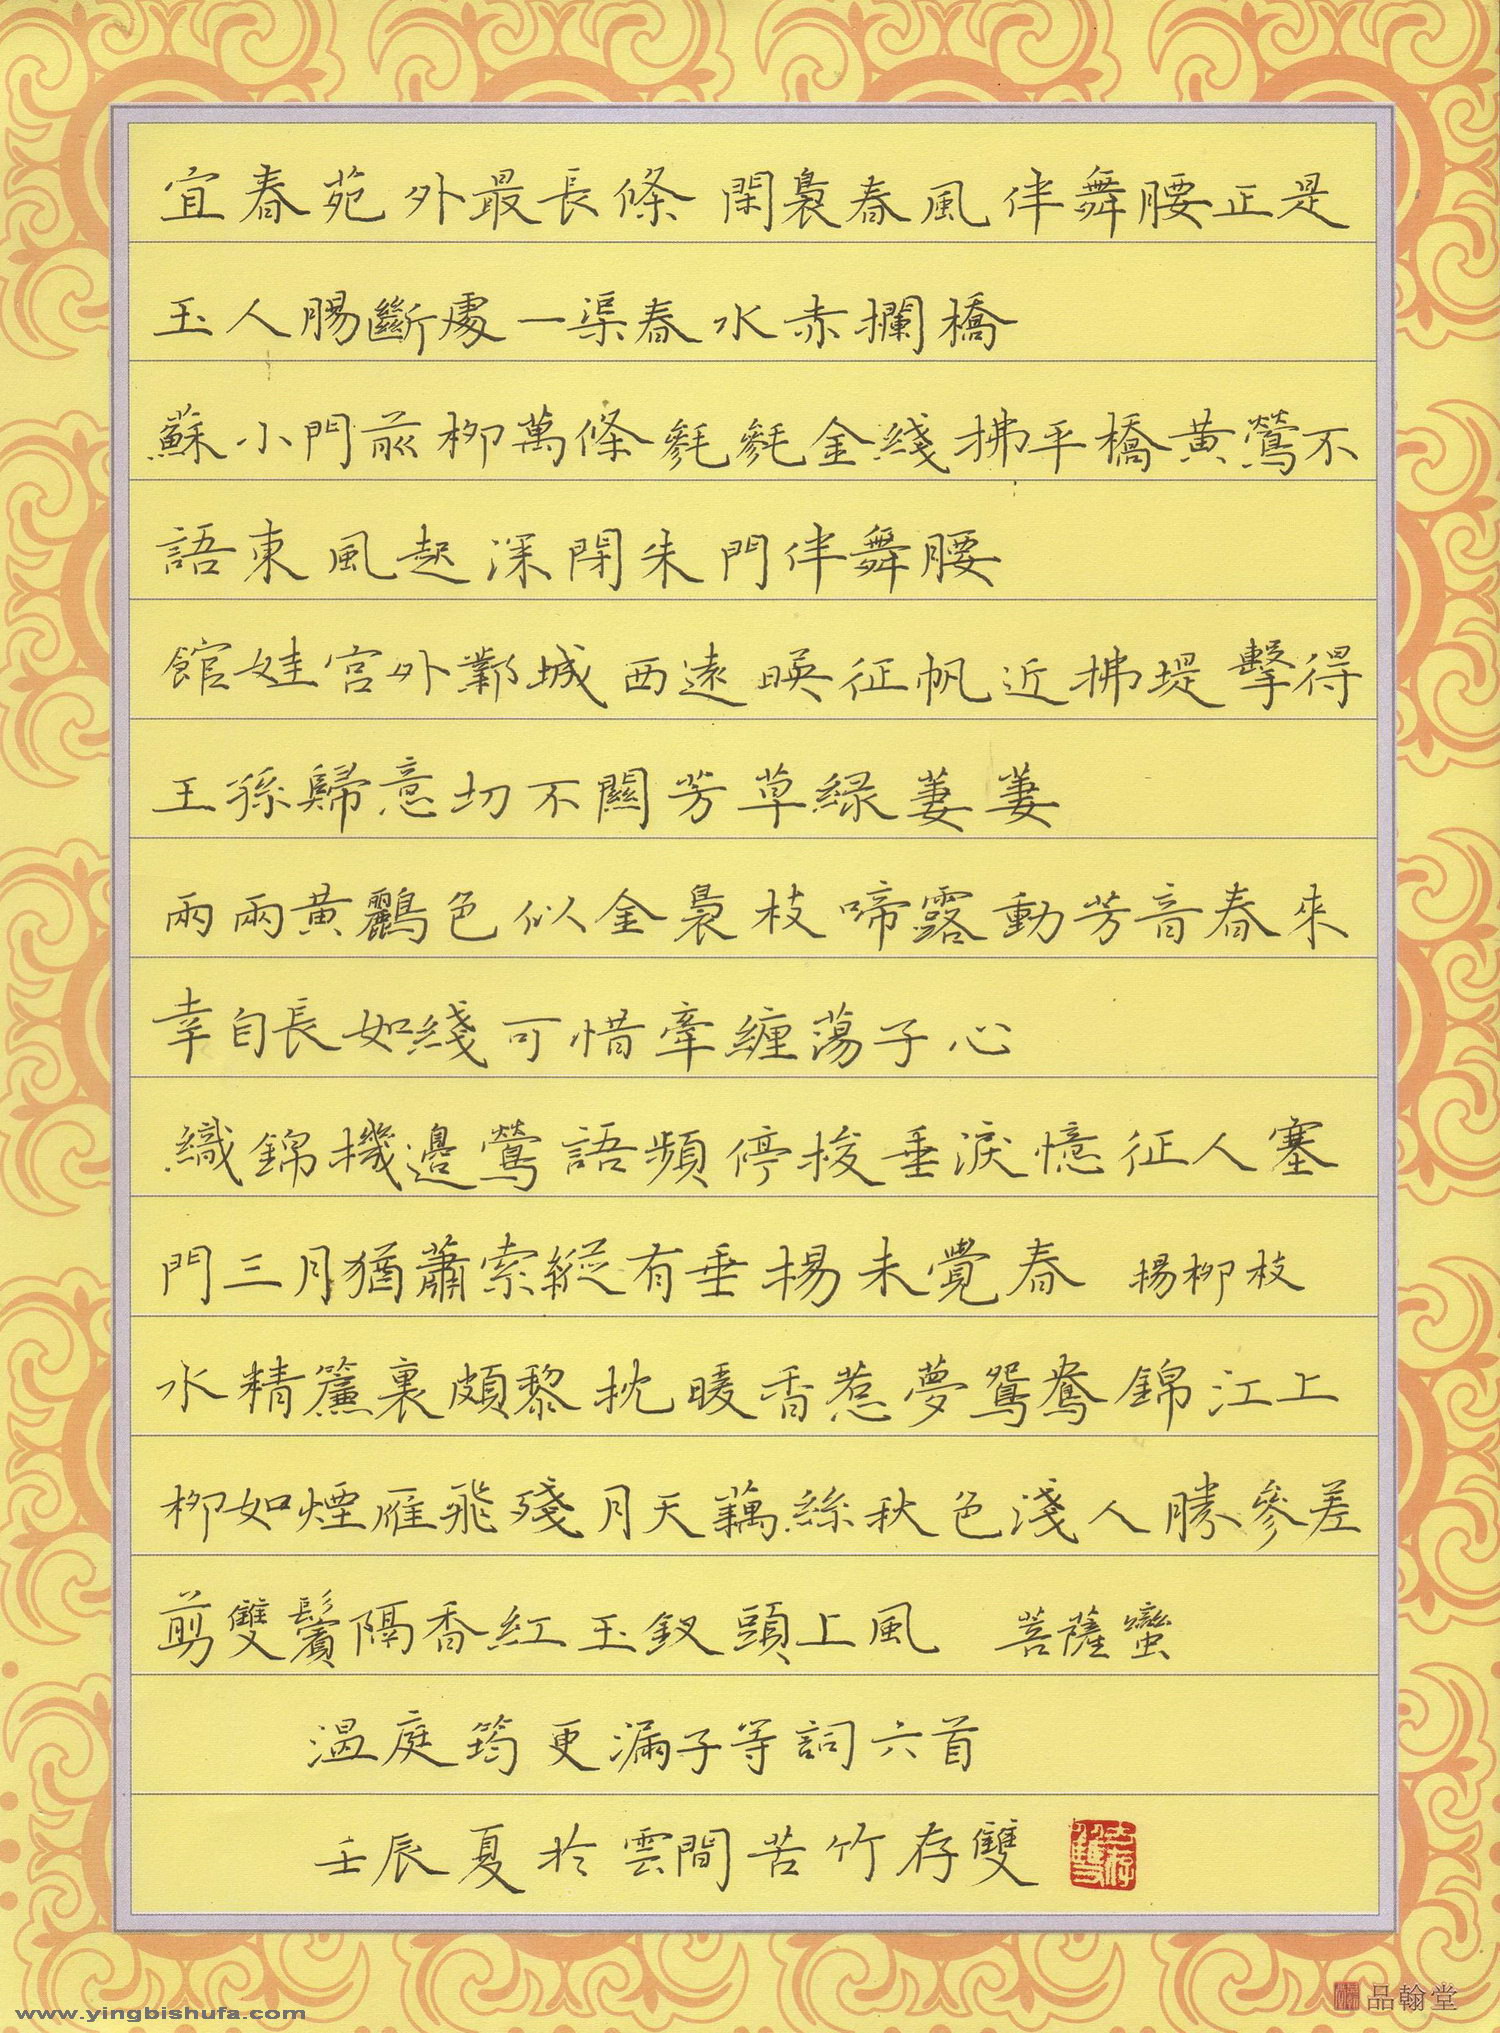 宜春苑外最長條 閑裊春風伴舞腰正是
玉人腸斷處一渠春水赤欄橋
蘇小門前柳萬條毿毿金綫拂平橋黄鶯不
語東風起深閉朱門伴舞腰
館娃宮外鄴城西遠暎征帆近拂堤繫得
王孫歸意切不關芳草緑萋萋
兩兩黄鸝色似金裊枝啼露動芳音春來
幸自長如綫可惜牽纏蕩子心
織錦機邊鶯語頻停梭垂淚憶征人塞
門三月猶蕭索縱有垂楊未覺春 楊柳枝
水精簾裏頗黎枕暖香惹夢鴛鴦錦江上
柳如煙雁飛殘月天藕絲秋色淺人勝參差
剪雙鬢隔香紅玉釵頭上風 菩薩蠻
温庭筠更漏子等詞六首
壬辰夏於雲間苦竹存雙
www.yingbishufa.com
品翰堂